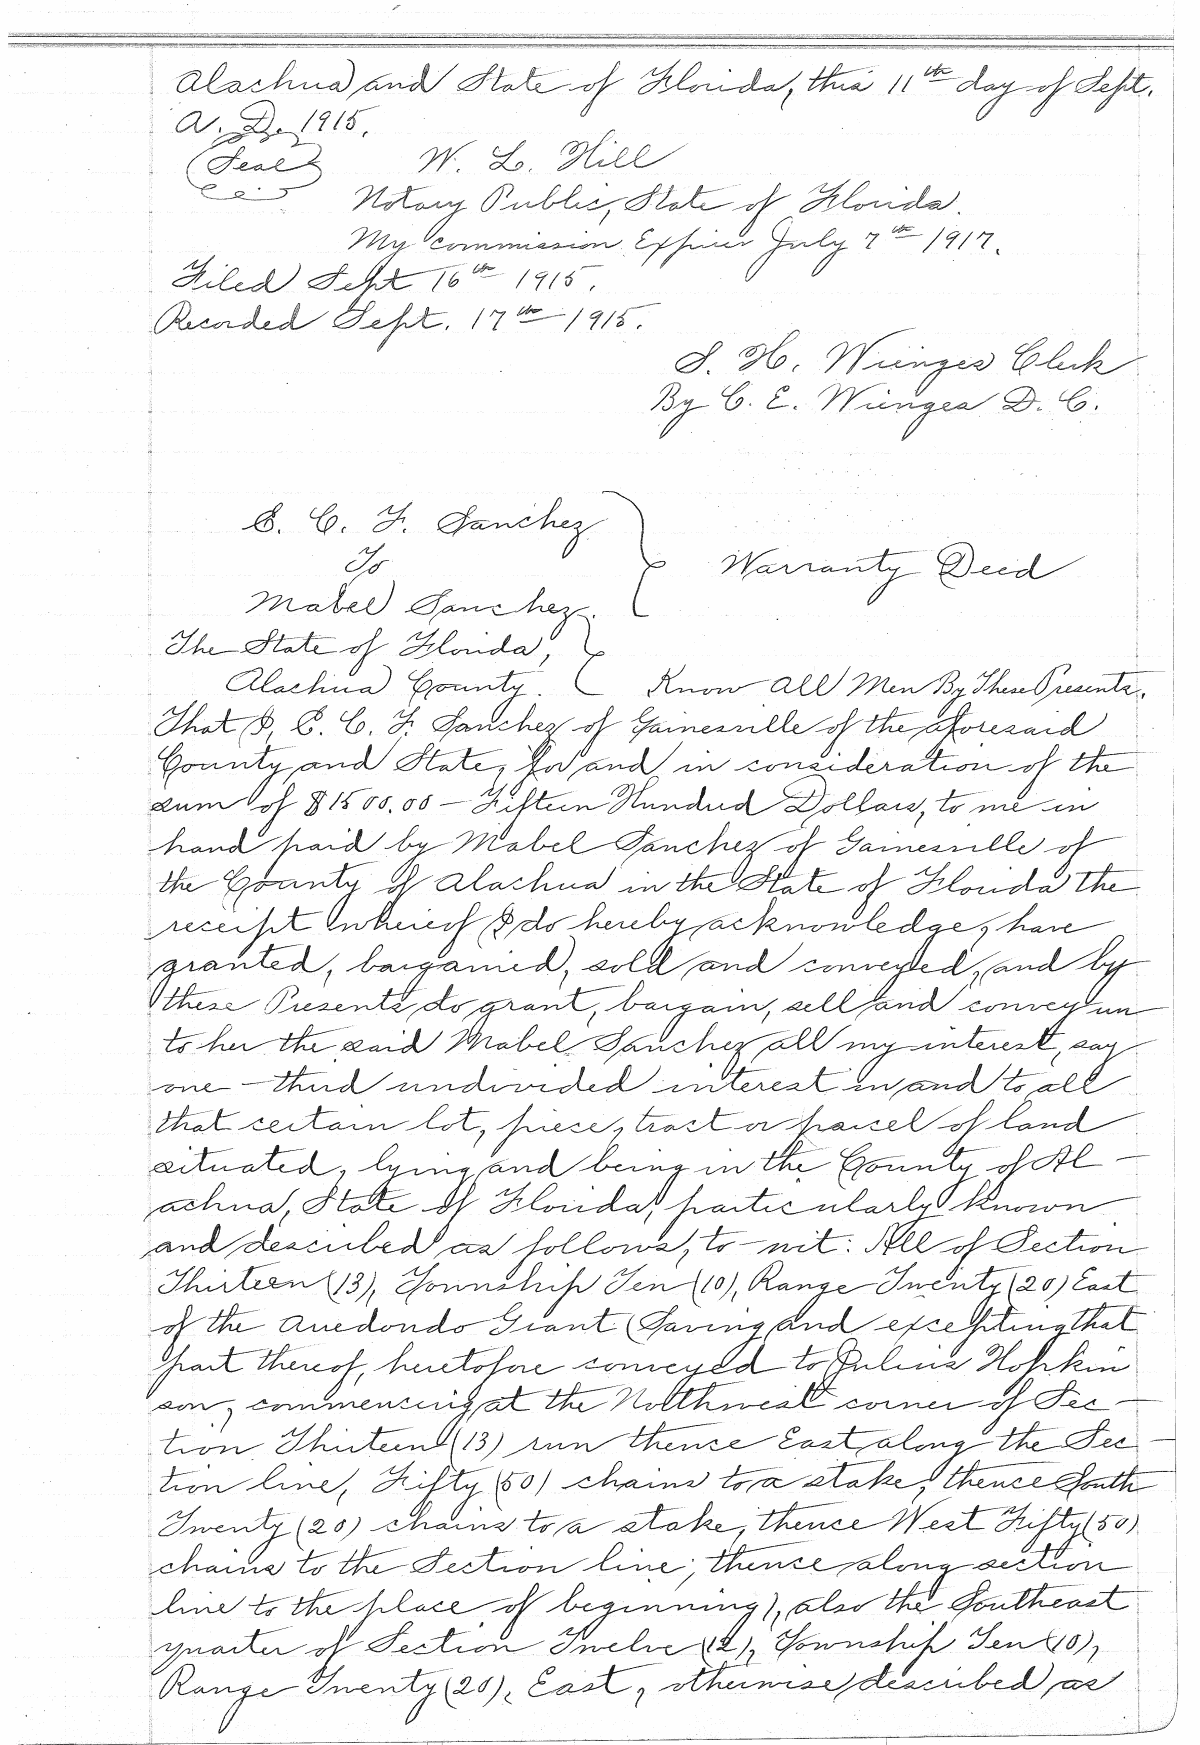 Alachua and State of Florida, this 11th day of Sept.
A. D. 1915.
(Seal) W. L. Hill
Notary Public, State of Florida.
My commission Expires July 7th 1917.
Filed Sept 16th 1915.
Recorded Sept. 17th 1915.
S. H. Wienges Clerk
By C. E. Wienges D. C.
E. C. F. Sanchez
To
Warranty Deed
Mabel Sanchez.
The State of Florida,
Alachua County. Know All Men By These Presents.
That I, E. C. F. Sanchez of Gainesville of the aforesaid
County and State, for and in consideration of the
sum of $1500.00 – Fifteen Hundred Dollars, to me in
hand paid by Mabel Sanchez of Gainesville of
the County of Alachua in the State of Florida the
receipt whereof I do hereby acknowledge, have
granted, bargained, sold and conveyed, and by
these Presents do grant, bargain, sell and convey un
to her the said Mabel Sanchez all my interest, say
one-third undivided interest in and to all
that certain lot, piece, tract or parcel of land
situated, lying and being in the County of Al–
achua, State of Florida, particularly known
and described as follows, to-wit: All of Section
Thirteen (13), Township Ten (10), Range Twenty (20) East
of the Arredondo Grant (Saving and excepting that
part thereof, heretofore conveyed to Julius Hopkin
son, commencing at the Northwest corner of Sec–
tion Thirteen (13) run thence East along the Sec–
tion line, Fifty (50) chains to a stake, thence South
Twenty (20) chains to a stake, thence West Fifty (50)
chains to the Section line; thence along section
line to the place of beginning), also the Southeast
quarter of Section Twelve (12), Township Ten (10),
Range Twenty (20), East, otherwise described as